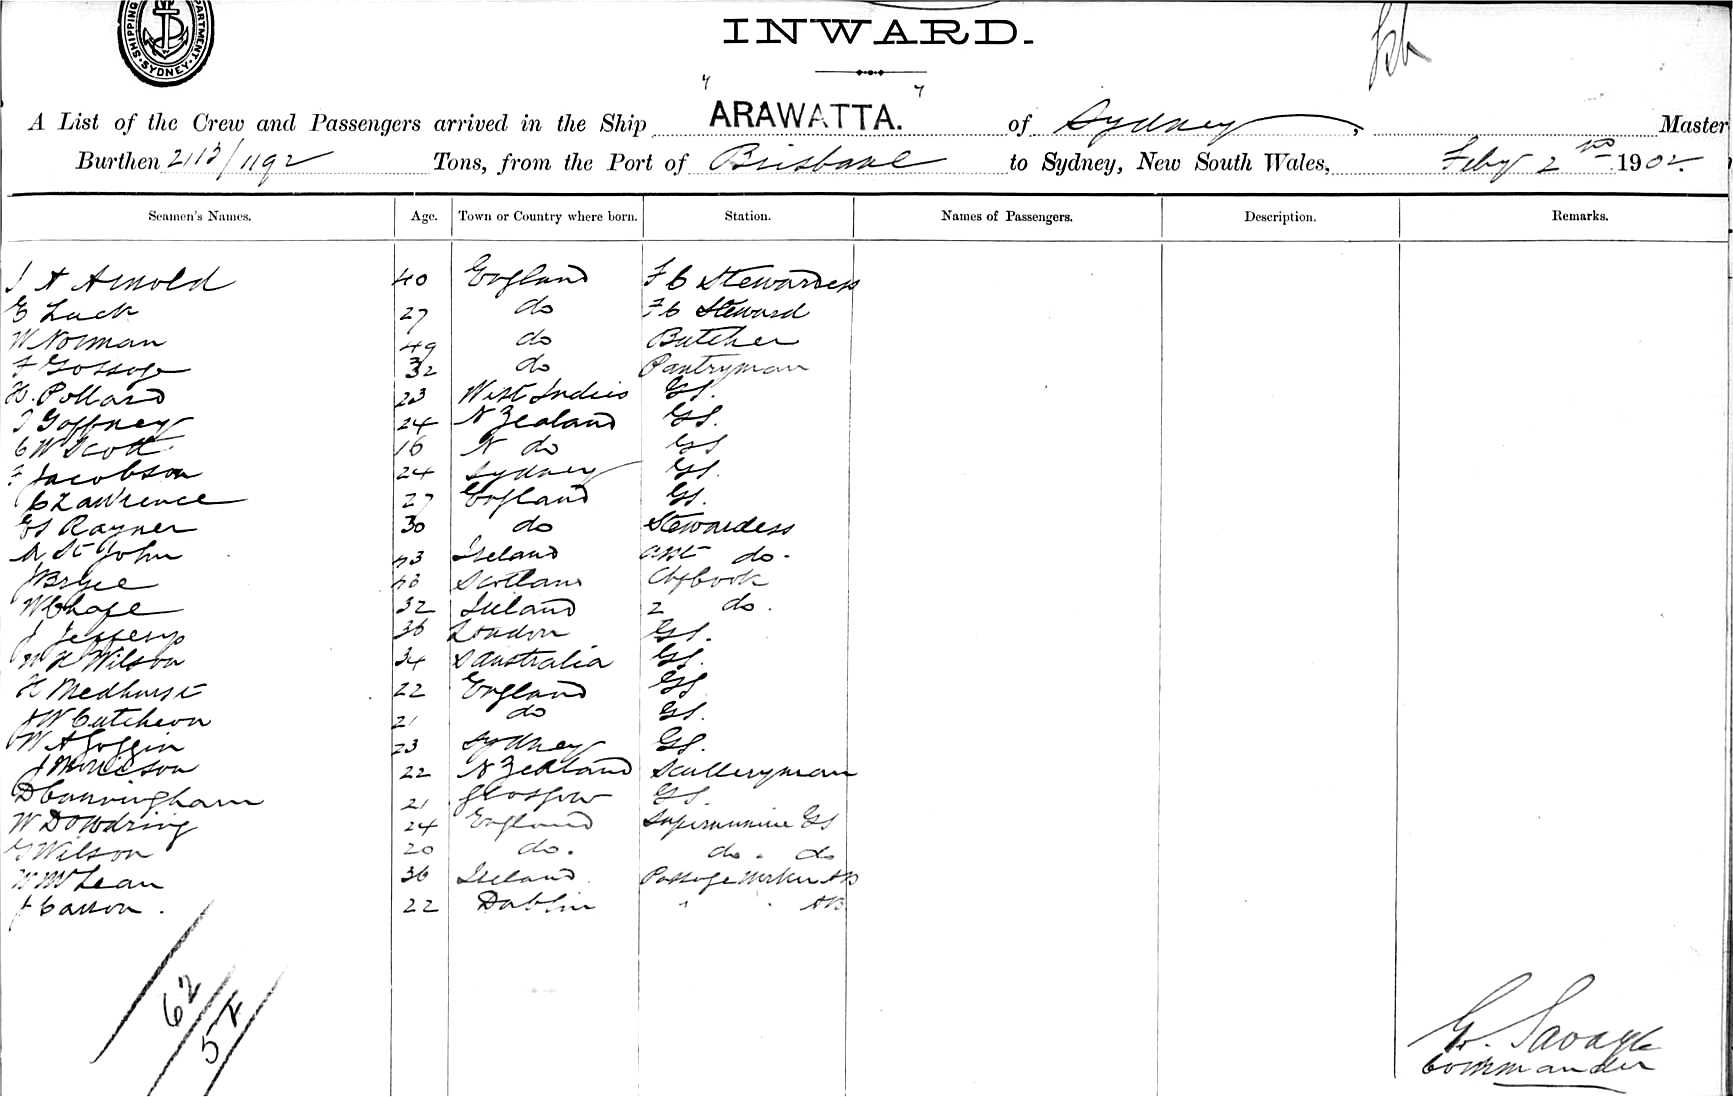 SHIPPING DEPARTMENT · SYDNEY ·
INWARD.
A List of the Crew and Passengers arrived in the Ship "ARAWATTA." of Sydney, Master
Burthen 2113/1192 Tons, from the Port of Brisbane to Sydney, New South Wales, Feby 2nd 1902.
Seamen's Names. Age. Town or Country where born. Station. Names of Passengers. Description. Remarks.
J A Arnold 40 England F C Stewardess
E Luck 27 do F C Steward
W Norman 49 do Butcher
F Gossage 32 do Pantryman
H. Pollard 23 West Indies GS.
J Gaffney 24 N Zealand GS.
C W Scott 16 N do GS
F Jacobson 24 Sydney GS.
C Lawrence 27 England GS.
Rayner 30 do Stewardess
St John 43 Ireland asst do.
J Bryce 48 Scotland Chf Cook
W Chase 32 Ireland 2 do.
J Jefferys 36 London GS.
W H Wilson 34 S Australia GS.
H Medhurst 22 England GS
A W Cutcheon 21 do GS.
W A Goggin 23 Sydney GS.
J Morrison 22 N Zealand Sculleryman
D Cunningham 21 Glasgow GS.
W Dowdring 24 England GS
G Wilson 20 do. do. do
W McLean 36 Ireland Passage AB
J Carson. 22 Dublin " " AB.
62
54
G. Savage
Commander